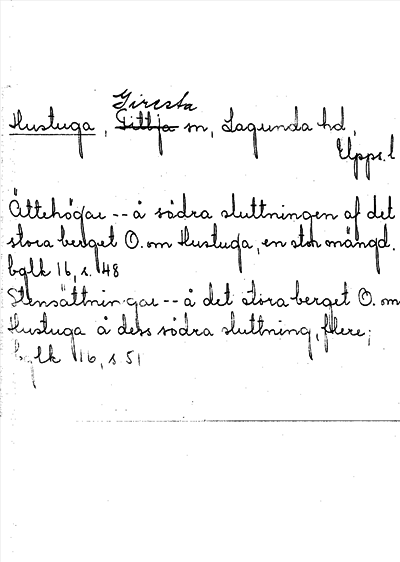 Giresta
Hustuga, Tillja sn, Lagunda hd,
Upps. l
Ättehögar -- å södra sluttningen af det
stora berget O. om Hustuga, en stor mängd.
bglk 16, s. 48
Stensättningar -- å det stora berget O. om
Hustuga å dess södra sluttning, flere;
bglk 16, s 51